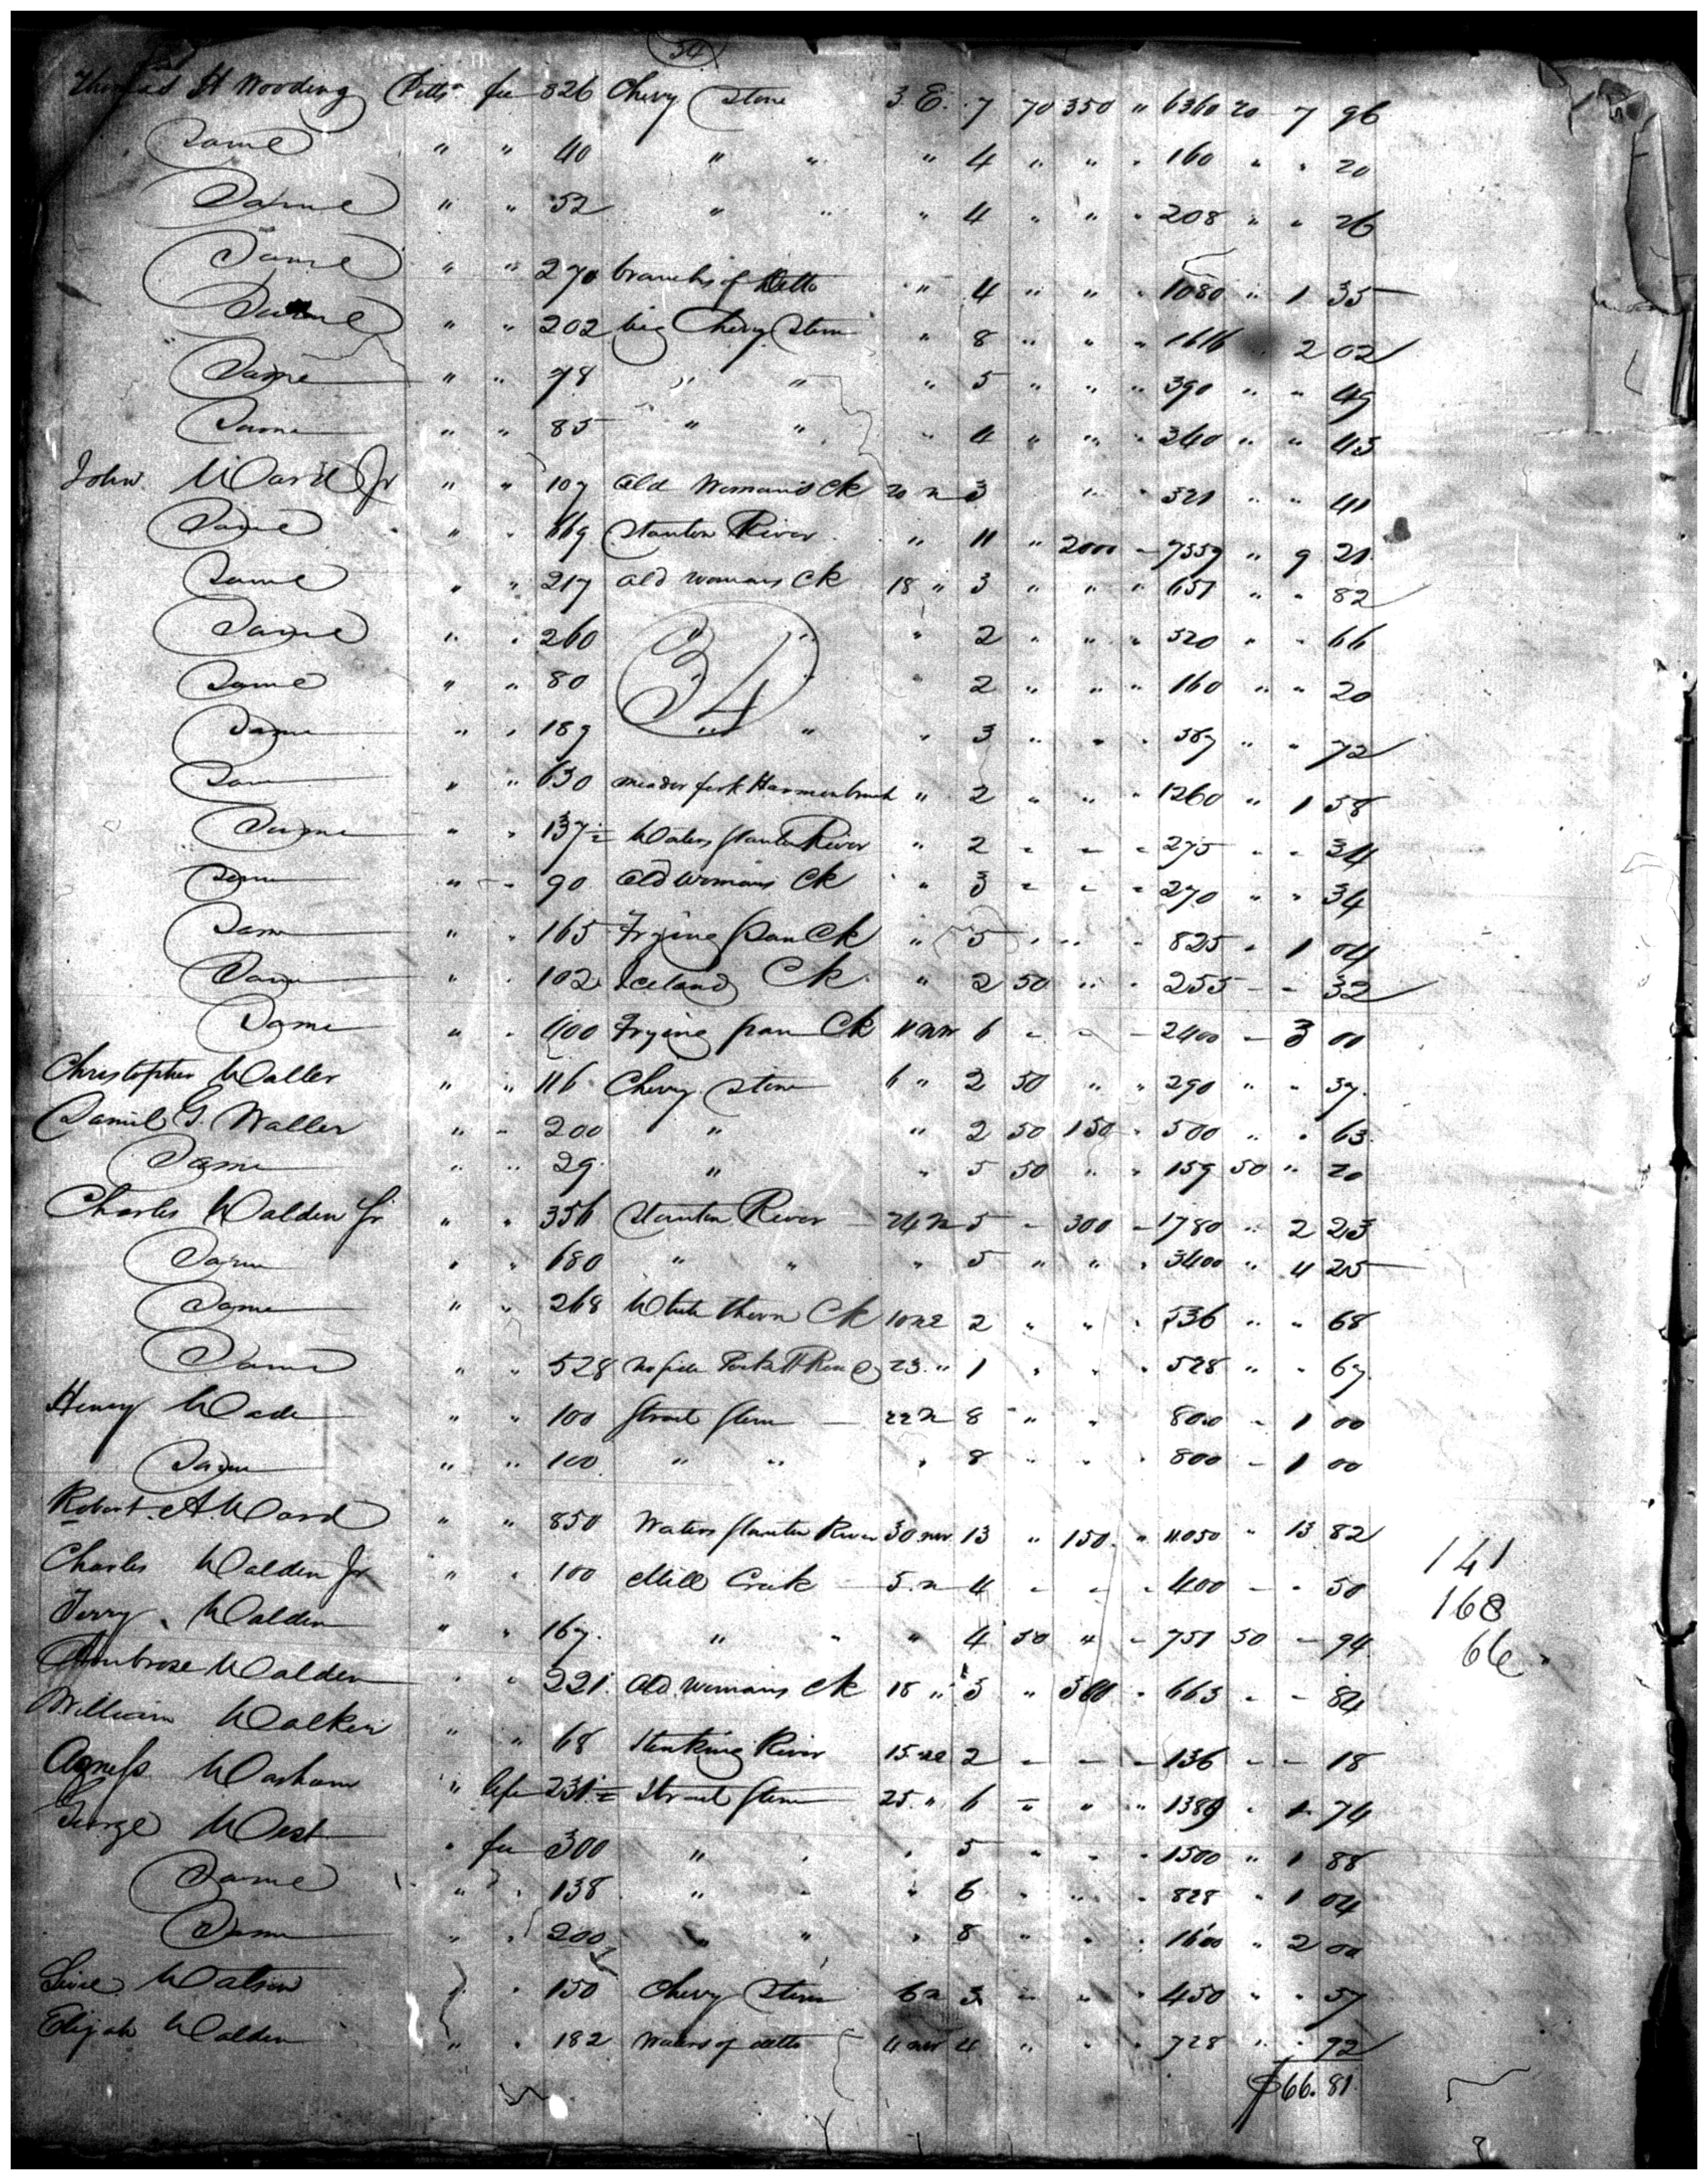 34
Thomas H Wooding Pittsa fee 826 Cherry Stone 3. E. 7 70 350 " 6360 20 7 96
Same " " 40 " " " 4 " " " 160 " " 20
Same " " 52 " " " 4 " " " 208 " " 26
Same " " 270 branches of Ditto " 4 " " " 1080 " 1 35
Same " " 202 big Cherry Stone " 8 " " " 1616 " 2 02
Same " " 78 " " " 5 " " " 390 " " 49
Same " " 85 " " " 4 " " " 340 " " 43
John Ward Jr " " 107 Old Womans Ck 20 n 3 " " 321 " " 41
Same " " 669 Stanton River " 11 " 2000 " 7359 " 9 21
Same " " 217 Old womans Ck 18 " 3 " " " 651 " " 82
Same " " 260 " " " 2 " " " 520 " " 66
34
Same " " 80 " " " 2 " " " 160 " " 20
Same " " 189 " " " 3 " " " 567 " " 72
Same " " 630 meador fork Harmon brnch " 2 " " " 1260 " 1 58
Same " " 137½ Waters Stanton River " 2 " " " 275 " " 34
Same " " 90 Old womans Ck " 3 " " " 270 " " 34
Same " " 165 Frying pan Ck " 5 " " " 825 " 1 04
Same " " 102 Iceland Ck " 2 50 " " 255 " " 32
Same " " 400 Frying pan Ck 11 nw 6 " " " 2400 " 3 00
Christopher Waller " " 116 Cherry Stone 6 " 2 50 " " 290 " " 37
Daniel G. Waller " " 200 " " 2 50 150 " 500 " " 63
Same " " 29 " " 5 50 " " 159 50 " 20
Charles Walden Sr " " 356 Stanton River 24 n 5 " 300 " 1780 " 2 23
Same " " 680 " " " 5 " " " 3400 " 4 25
Same " " 268 White thorn Ck 10 ne 2 " " " 536 " " 68
Same " " 528 no side 23 " 1 " " " 528 " " 67
Henry Wade " " 100 Strait Stone 22 n 8 " " 800 " 1 00
Same " " 100 " " " 8 " " " 800 " 1 00
Robert A. Ward " " 850 Waters Stanton River 30 nw 13 " 150 " 11050 " 13 82
141
Charles Walden Jr " " 100 Mill Creek 5 n 4 " " " 400 " " 50
168
Terry Walden " " 167 " " " 4 50 " " 751 50 " 94
66
Ambrose Walden " " 221 Old womans Ck 18 " 3 " 500 " 663 " " 84
William Walker " " 68 Stinking River 15 ne 2 " " " 136 " " 18
Agness Washam " life 231½ Strait Stone 25 " 6 " " " 1389 " 1 74
George West " fee 300 " " " 5 " " " 1500 " 1 88
Same " " 138 " " " 6 " " " 828 " 1 04
Same " " 200 " " " 8 " " " 1600 " 2 00
Watson " 150 Cherry Stone 6 n 3 " " " 450 " " 57
Elijah Walden " " 182 Waters of ditto 4 nw 4 " " " 728 " " 92
$66.81